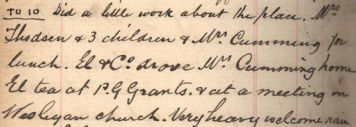 TU 10 Did a little work about the place. Mrs
Thodsen & 3 children & Mrs Cumming for
lunch. El & Co drove Mrs Cumming home
El tea at P.G Grants. & at a meeting in
Wesleyan church. Very heavy welcome rain